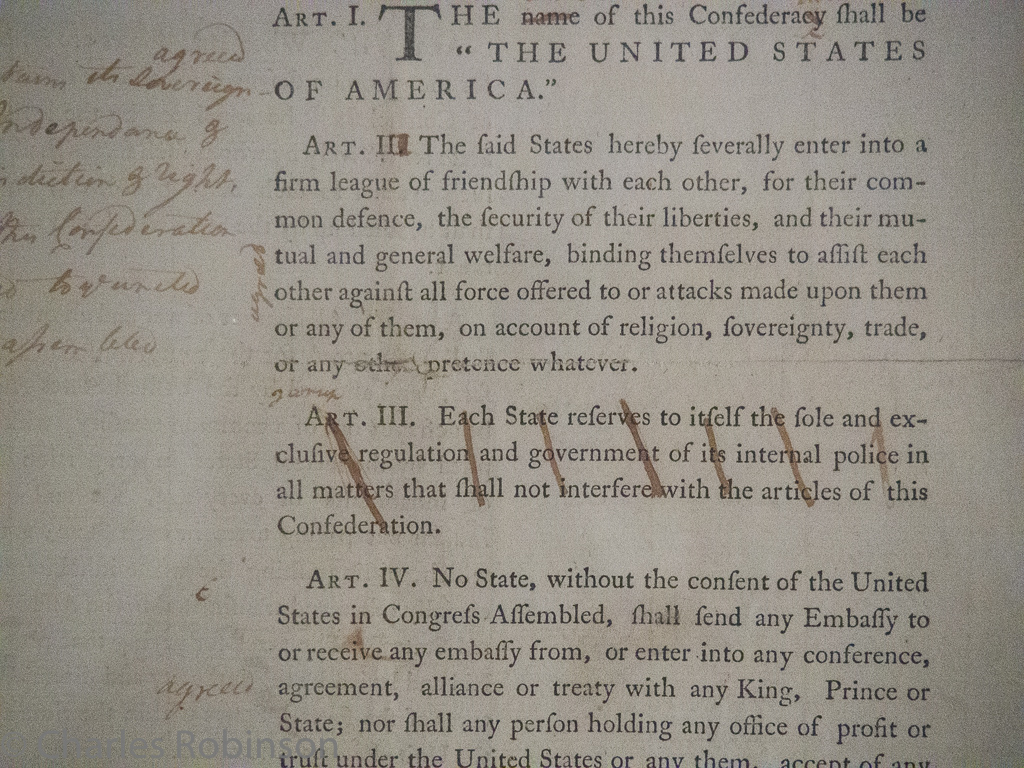 ART. I. THE name of this Confederacy ſhall be
“THE UNITED STATES
OF AMERICA.”
agreed
its Sovereign
Independance &
diction & right,
Confederation
aſsembled
ART. III The ſaid States hereby ſeverally enter into a
firm league of friendſhip with each other, for their com-
mon defence, the ſecurity of their liberties, and their mu-
tual and general welfare, binding themſelves to aſſiſt each
other againſt all force offered to or attacks made upon them
or any of them, on account of religion, ſovereignty, trade,
or any other pretence whatever.
agreed
ART. III. Each State reſerves to itſelf the ſole and ex-
cluſive regulation and government of its internal police in
all matters that ſhall not interfere with the articles of this
Confederation.
c
ART. IV. No State, without the conſent of the United
States in Congreſs Aſſembled, ſhall ſend any Embaſſy to
or receive any embaſſy from, or enter into any conference,
agreed
agreement, alliance or treaty with any King, Prince or
State; nor ſhall any perſon holding any office of profit or
truſt under the United States or any them, accept of any
Charles Robinson